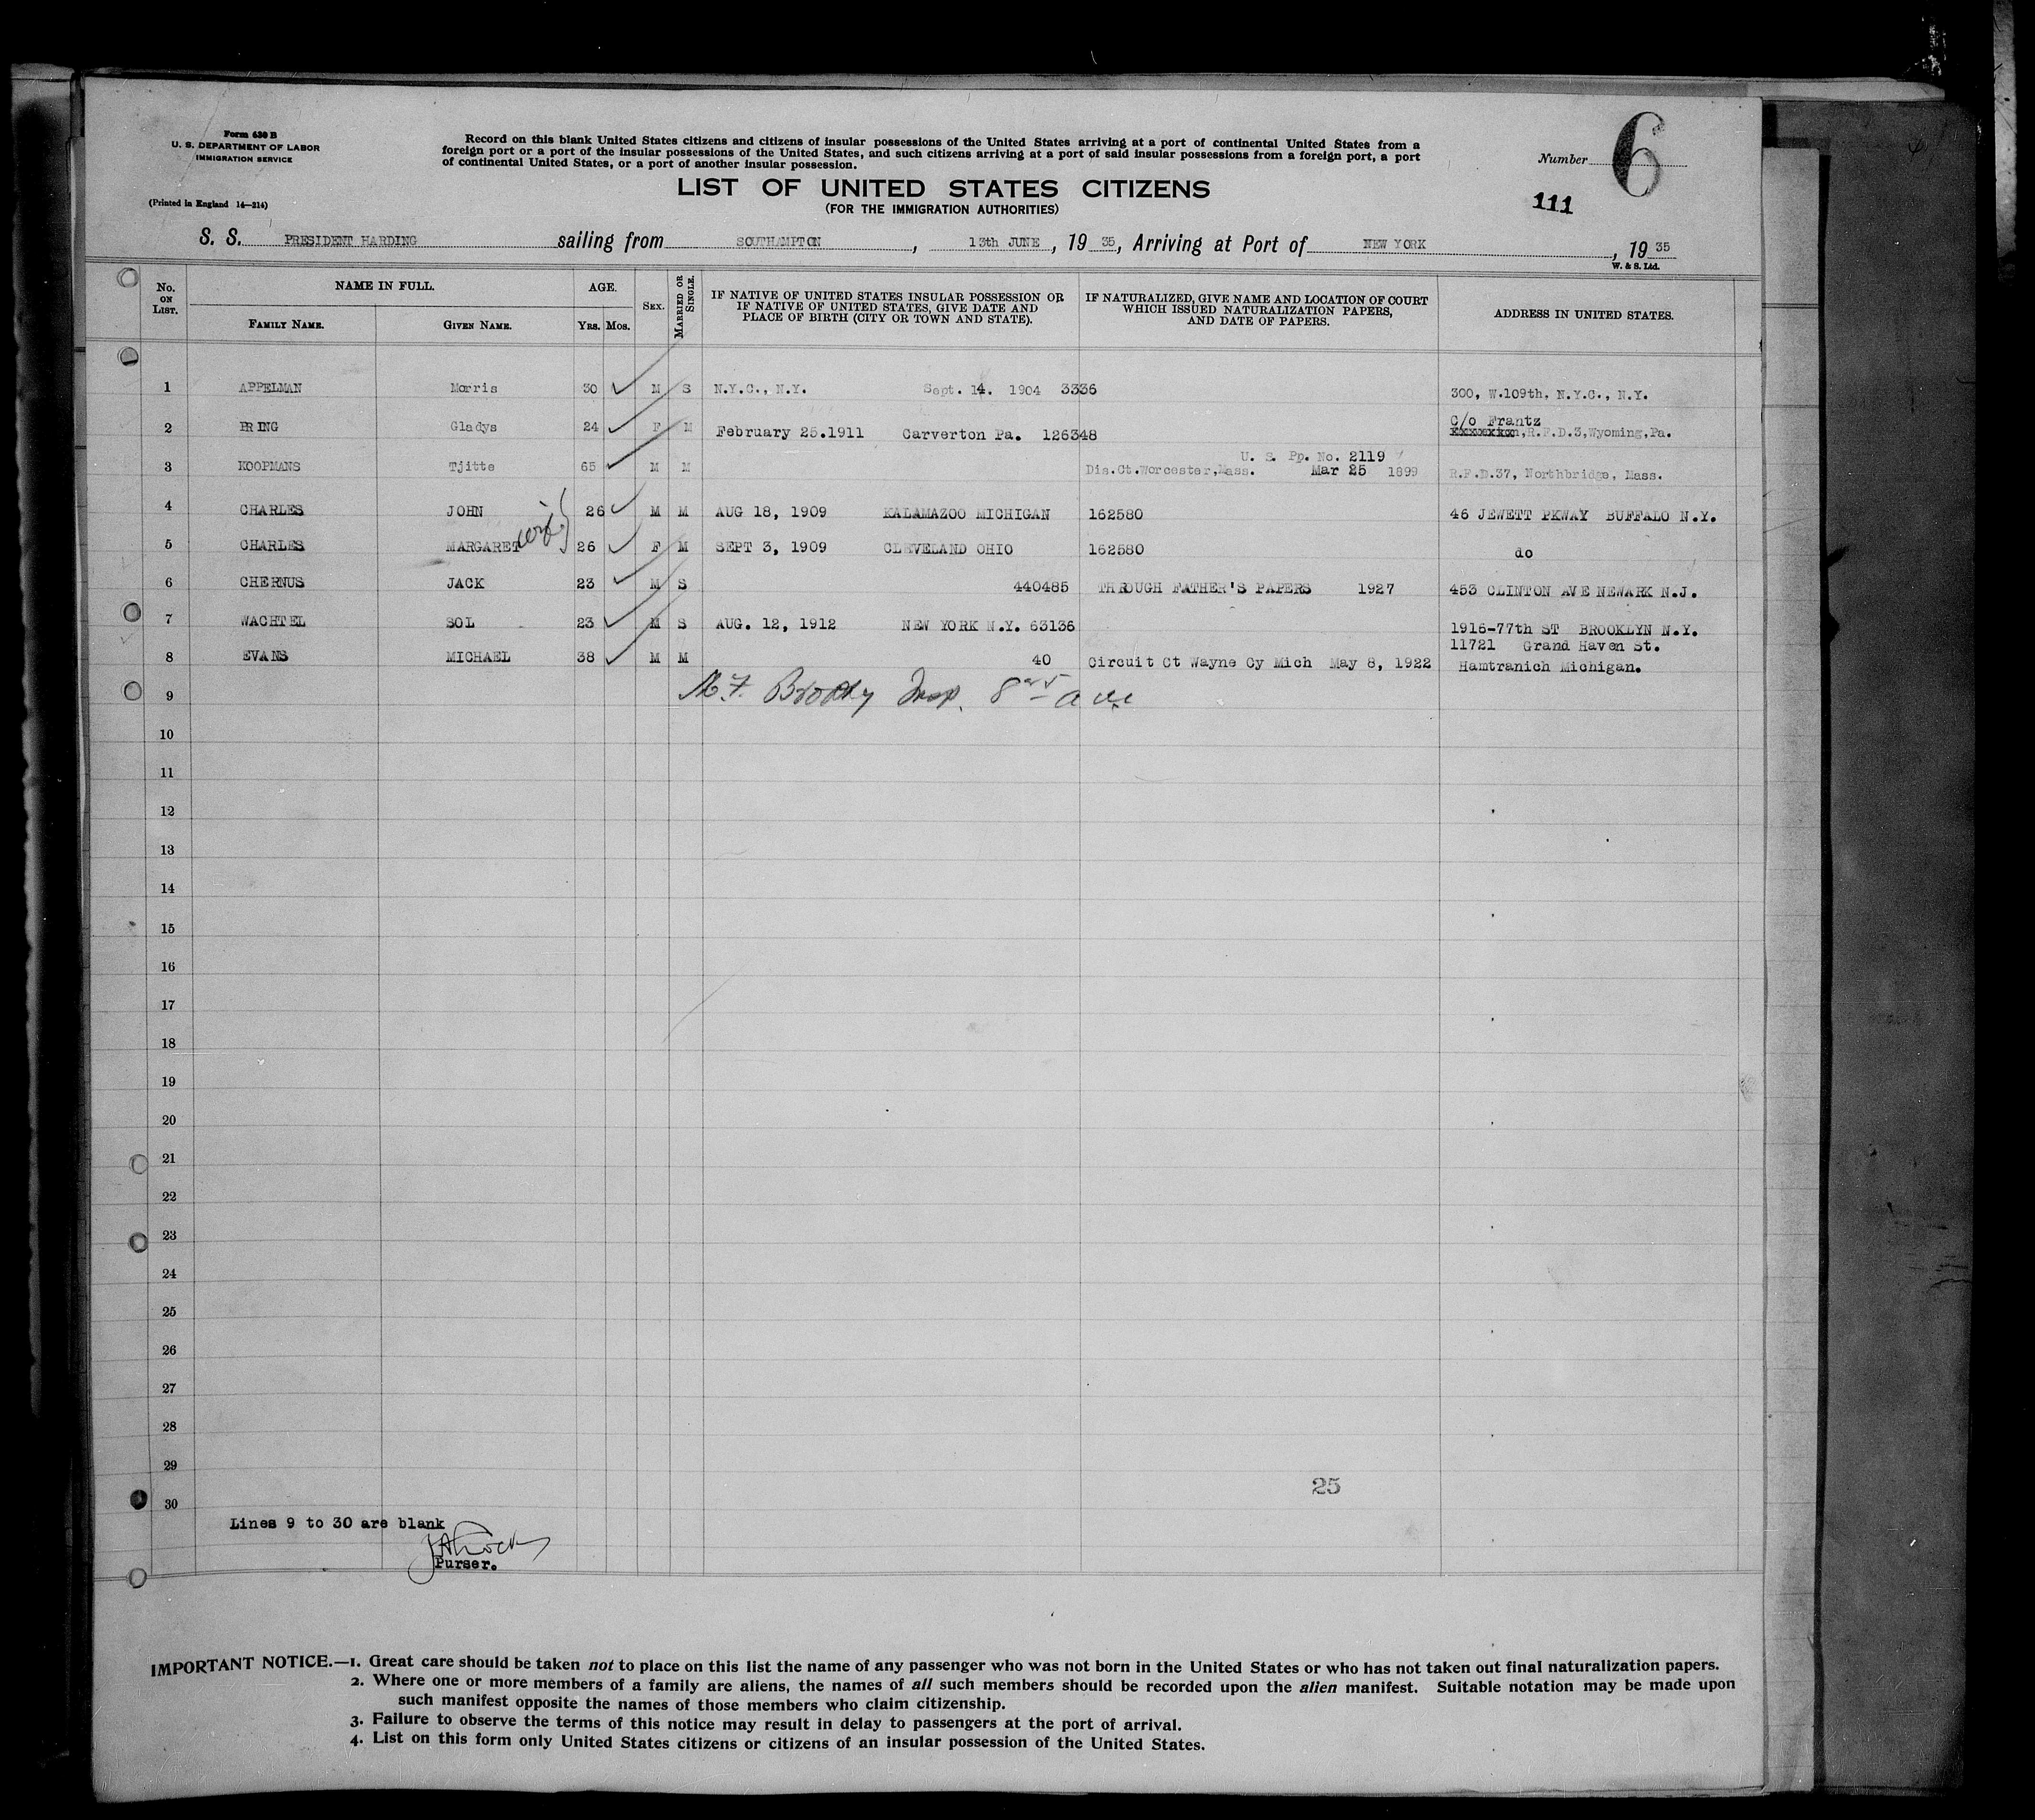 Form 630 B
U. S. DEPARTMENT OF LABOR
IMMIGRATION SERVICE
(Printed in England 14—214)
Record on this blank United States citizens and citizens of insular possessions of the United States arriving at a port of continental United States from a
foreign port or a port of the insular possessions of the United States, and such citizens arriving at a port of said insular possessions from a foreign port, a port
of continental United States, or a port of another insular possession.
Number 6
LIST OF UNITED STATES CITIZENS
(FOR THE IMMIGRATION AUTHORITIES)
111
S. S. PRESIDENT HARDING sailing from SOUTHAMPTON, 13th JUNE, 19 35, Arriving at Port of NEW YORK, 19 35
W. & S. Ltd.
No. ON LIST. NAME IN FULL. AGE. SEX. MARRIED OR SINGLE. IF NATIVE OF UNITED STATES INSULAR POSSESSION OR IF NATIVE OF UNITED STATES, GIVE DATE AND PLACE OF BIRTH (CITY OR TOWN AND STATE). IF NATURALIZED, GIVE NAME AND LOCATION OF COURT WHICH ISSUED NATURALIZATION PAPERS, AND DATE OF PAPERS. ADDRESS IN UNITED STATES.
FAMILY NAME. GIVEN NAME. YRS. MOS.
1 APPELMAN Morris 30 M S N.Y.C., N.Y. Sept. 14. 1904 3336 300, W.109th. N.Y.C., N.Y.
C/o Frantz
2 PRING Gladys 24 F M February 25.1911 Carverton Pa. 126348 R.F.D.3,Wyoming,Pa.
U. S. Pp. No. 2119
3 KOOPMANS Tjitte 65 M M Dis.Ct.Worcester,Mass. Mar 25 1899 R.F.D.37, Northbridge, Mass.
4 CHARLES JOHN 26 M M AUG 18, 1909 KALAMAZOO MICHIGAN 162580 46 JEWETT PKWAY BUFFALO N.Y.
wife
5 CHARLES MARGARET 26 F M SEPT 3, 1909 CLEVELAND OHIO 162580 do
6 CHERNUS JACK 23 M S 440485 THROUGH FATHER'S PAPERS 1927 453 CLINTON AVE NEWARK N.J.
7 WACHTEL SOL 23 M S AUG. 12, 1912 NEW YORK N.Y. 63136 1916-77th ST BROOKLYN N.Y.
11721 Grand Haven St.
8 EVANS MICHAEL 38 M M 40 Circuit Ct Wayne Cy Mich May 8, 1922 Hamtranich Michigan.
9
10
11
12
13
14
15
16
17
18
19
20
21
22
23
24
25
26
27
28
29
25
30
Lines 9 to 30 are blank
Purser.
IMPORTANT NOTICE.—1. Great care should be taken not to place on this list the name of any passenger who was not born in the United States or who has not taken out final naturalization papers.
2. Where one or more members of a family are aliens, the names of all such members should be recorded upon the alien manifest. Suitable notation may be made upon
such manifest opposite the names of those members who claim citizenship.
3. Failure to observe the terms of this notice may result in delay to passengers at the port of arrival.
4. List on this form only United States citizens or citizens of an insular possession of the United States.